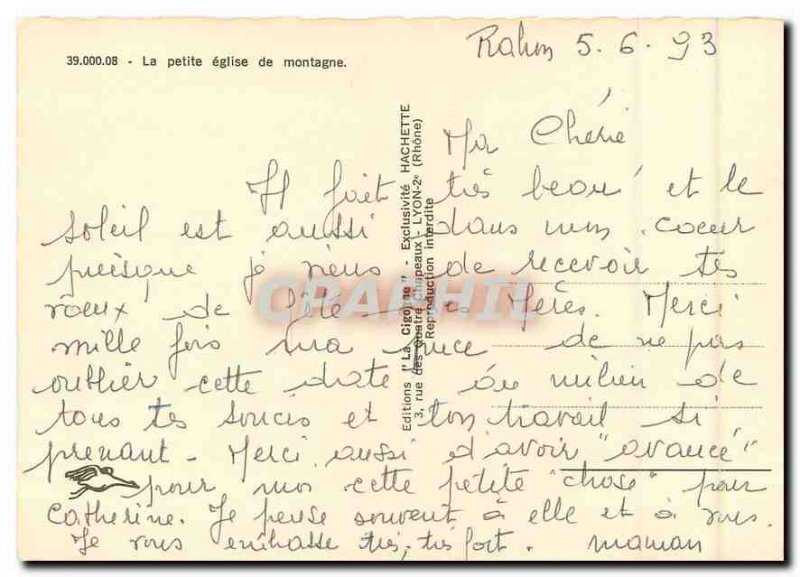 39.000.08 - La petite église de montagne.
5.6.93
Ma Chérie
Il fait très beau et le
soleil est aussi dans mon coeur
puisque je viens de recevoir tes
voeux de fête des Mères. Merci
mille fois ma puce de ne pas
oublier cette date au milieu de
tous tes soucis et ton travail si
prenant - Merci aussi d'avoir "avancé"
pour moi cette petite "chose" pour
Catherine. Je pense souvent à elle et à vous.
Je vous embrasse très, très fort. maman
Editions "La Cigogne" - Exclusivité HACHETTE
3, rue des Quatre Chapeaux - LYON-2e (Rhône)
Reproduction interdite